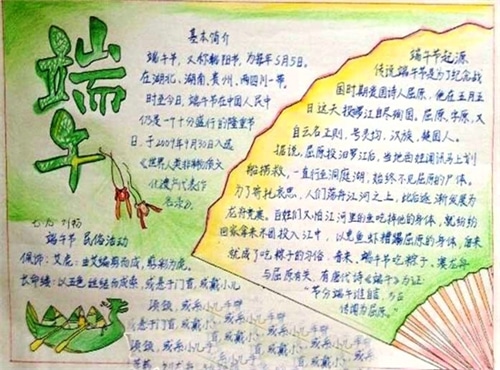 端午
基本简介
端午节，又称端阳节，为每年5月5日。
在湖北、湖南、贵州、四川一带。
时至今日，端午节在中国人民中
仍是一个十分盛行的隆重节
日，于2009年9月30日入选
《世界人类非物质文
化遗产代表作
名录》。
端午节 民俗活动
佩饰：艾虎：由艾编剪而成，剪彩为虎。
长命缕：以五色丝结而成索，或悬于门首，或戴小儿
项颈，或系小儿手臂
或悬于门首，或戴小儿
项颈，或系小儿手
端午节起源
传说端午节是为了纪念战
国时期楚国诗人屈原，他在五月五
日这天投汨罗江自尽殉国。屈原，字原，又
自云名正则，号灵均，汉族，楚国人。
据说，屈原投汨罗江后，当地百姓闻讯马上划
船捞救，一直行至洞庭湖，始终不见屈原的尸体。
为了寄托哀思，人们荡舟江河之上，此后逐渐发展为
龙舟竞赛。百姓们又怕江河里的鱼吃掉他的身体，就纷纷
回家拿来米团投入江中，以免鱼虾糟蹋屈原的身体，后来
就成了吃粽子的习俗。看来，端午节吃粽子、赛龙舟
与屈原有关，有唐代诗《端午》为证：
“节分端午谁言，万古
传闻为屈原。”